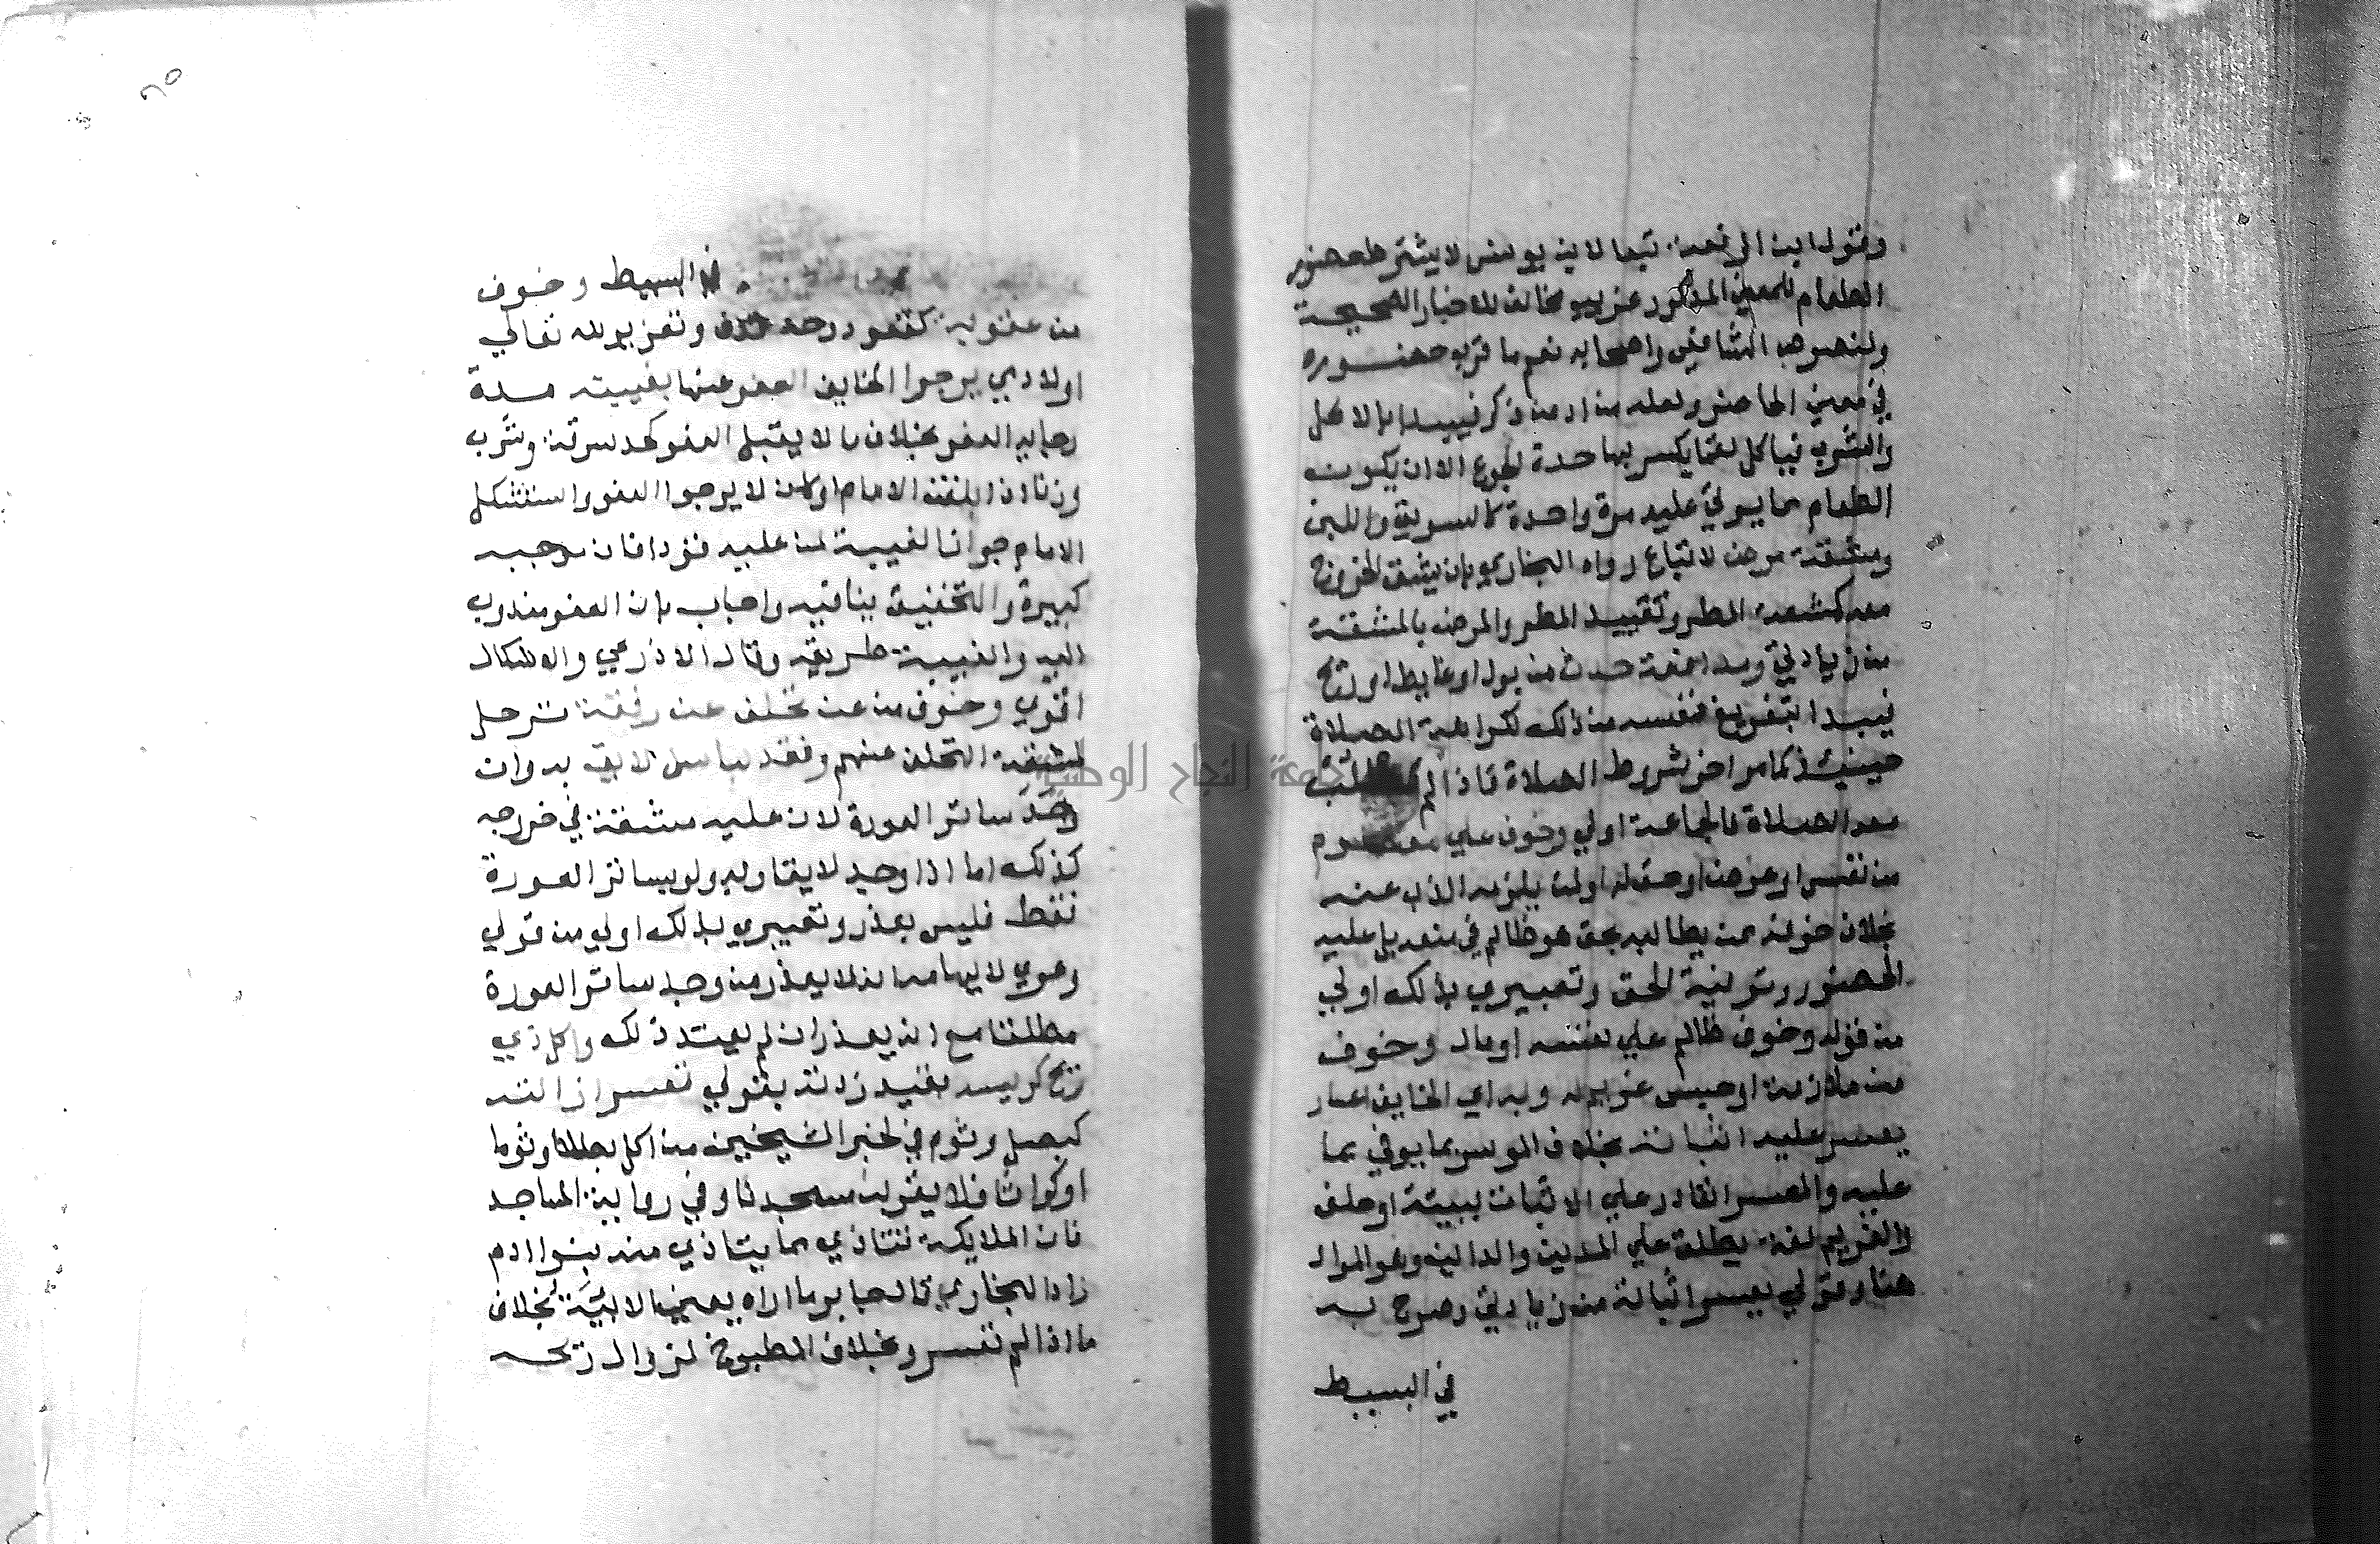 وقول ابن الرفعة تبعا لابن يونس لا يشترط حضور
الطعام للمعنى المذكور غريب مخالف للاخبار الصحيحة
ولنصوص الشافعي واصحابه نعم ما قرب حضوره
في معنى الحاضر ولعله مراد من ذكر فيبدا بالاكل
والشرب فياكل لقما يكسر بها حدة الجوع الا ان يكون
الطعام مما يوتي عليه مرة واحدة كالسويق واللبن
ومشقة مرض لاتباع رواه البخاري بان يشق الخروج
معه كمشقة المطر وتقييد المطر والمرض بالمشقة
من زيادتي ومدافعة حدث من بول او غايط او ريح
فيبدا بتفريغ نفسه من ذلك لكراهة الصلاة
حينيذ كما مر اخر شروط الصلاة فاذا لم
معه الصلاة فالجماعة اولي وخوف علي معصوم
من نفس او عرض او حق له او لمن يلزمه الذب عنه
بخلاف خوفه ممن يطالبه بحق هو ظالم في منعه بل عليه
الحضور وتوفية الحق وتعبيري بذلك اولي
من قوله وخوف ظالم علي نفسه او مال وخوف
من ملازمة او حبس غريم له وبه اي الخايف اعسار
يعسر عليه اثباته بخلاف الموسر بما يوفي بما
عليه والمعسر القادر علي الاثبات ببينة او حلف
والغريم لغة يطلق علي المدين والداين وهو المراد
هنا وقولي يعسر اثباته من زيادتي وصرح به
في البسيط
في البسيط وخوف
من عقوبة كقود وحد قذف وتعزير لله تعالي
او لادمي يرجوا الخايف العفو عنها بغيبته مدة
رجايه العفو بخلاف ما لا يقبل العفو كحد سرقة وشرب
وزنا اذا بلغت الامام او كان لا يرجوا العفو واستشكل
الامام جواز الغيبة لمن عليه قود فان موجبه
كبيرة والتخفيف ينافيه واجاب بان العفو مندوب
اليه والغيبة طريقه وقال الاذرعي والاشكال
اقوي وخوف من عن تخلف عن رفقة ترحل
لمشقة التخلف عنهم وفقد لباس لايق به وان
وجد ساتر العورة لان عليه مشقة في خروجه
كذلك اما اذا وجد لايقا وله ولو بساتر العورة
فقط فليس بعذر وتعبيري بذلك اولي من قولي
وعري لايهامه انه لا يعذر من وجد ساتر العورة
مطلقا مع انه يعذر ان لم يعتد ذلك واكل ذي
ريح كريه بقيد زدته بقولي تعسر ازالته
كبصل وثوم في لخبر الشيخين من اكل بصلا او ثوما
او كراثا فلا يقرب مسجدنا وفي رواية المساجد
فان الملايكة تتاذي مما يتاذي منه بنوا ادم
زاد البخاري قال جابر ما اراه يعني الا نيئه بخلاف
ما اذا لم تعسر وبخلاف المطبوخ لزوال ريحه
جامعة النجاح الوطنية